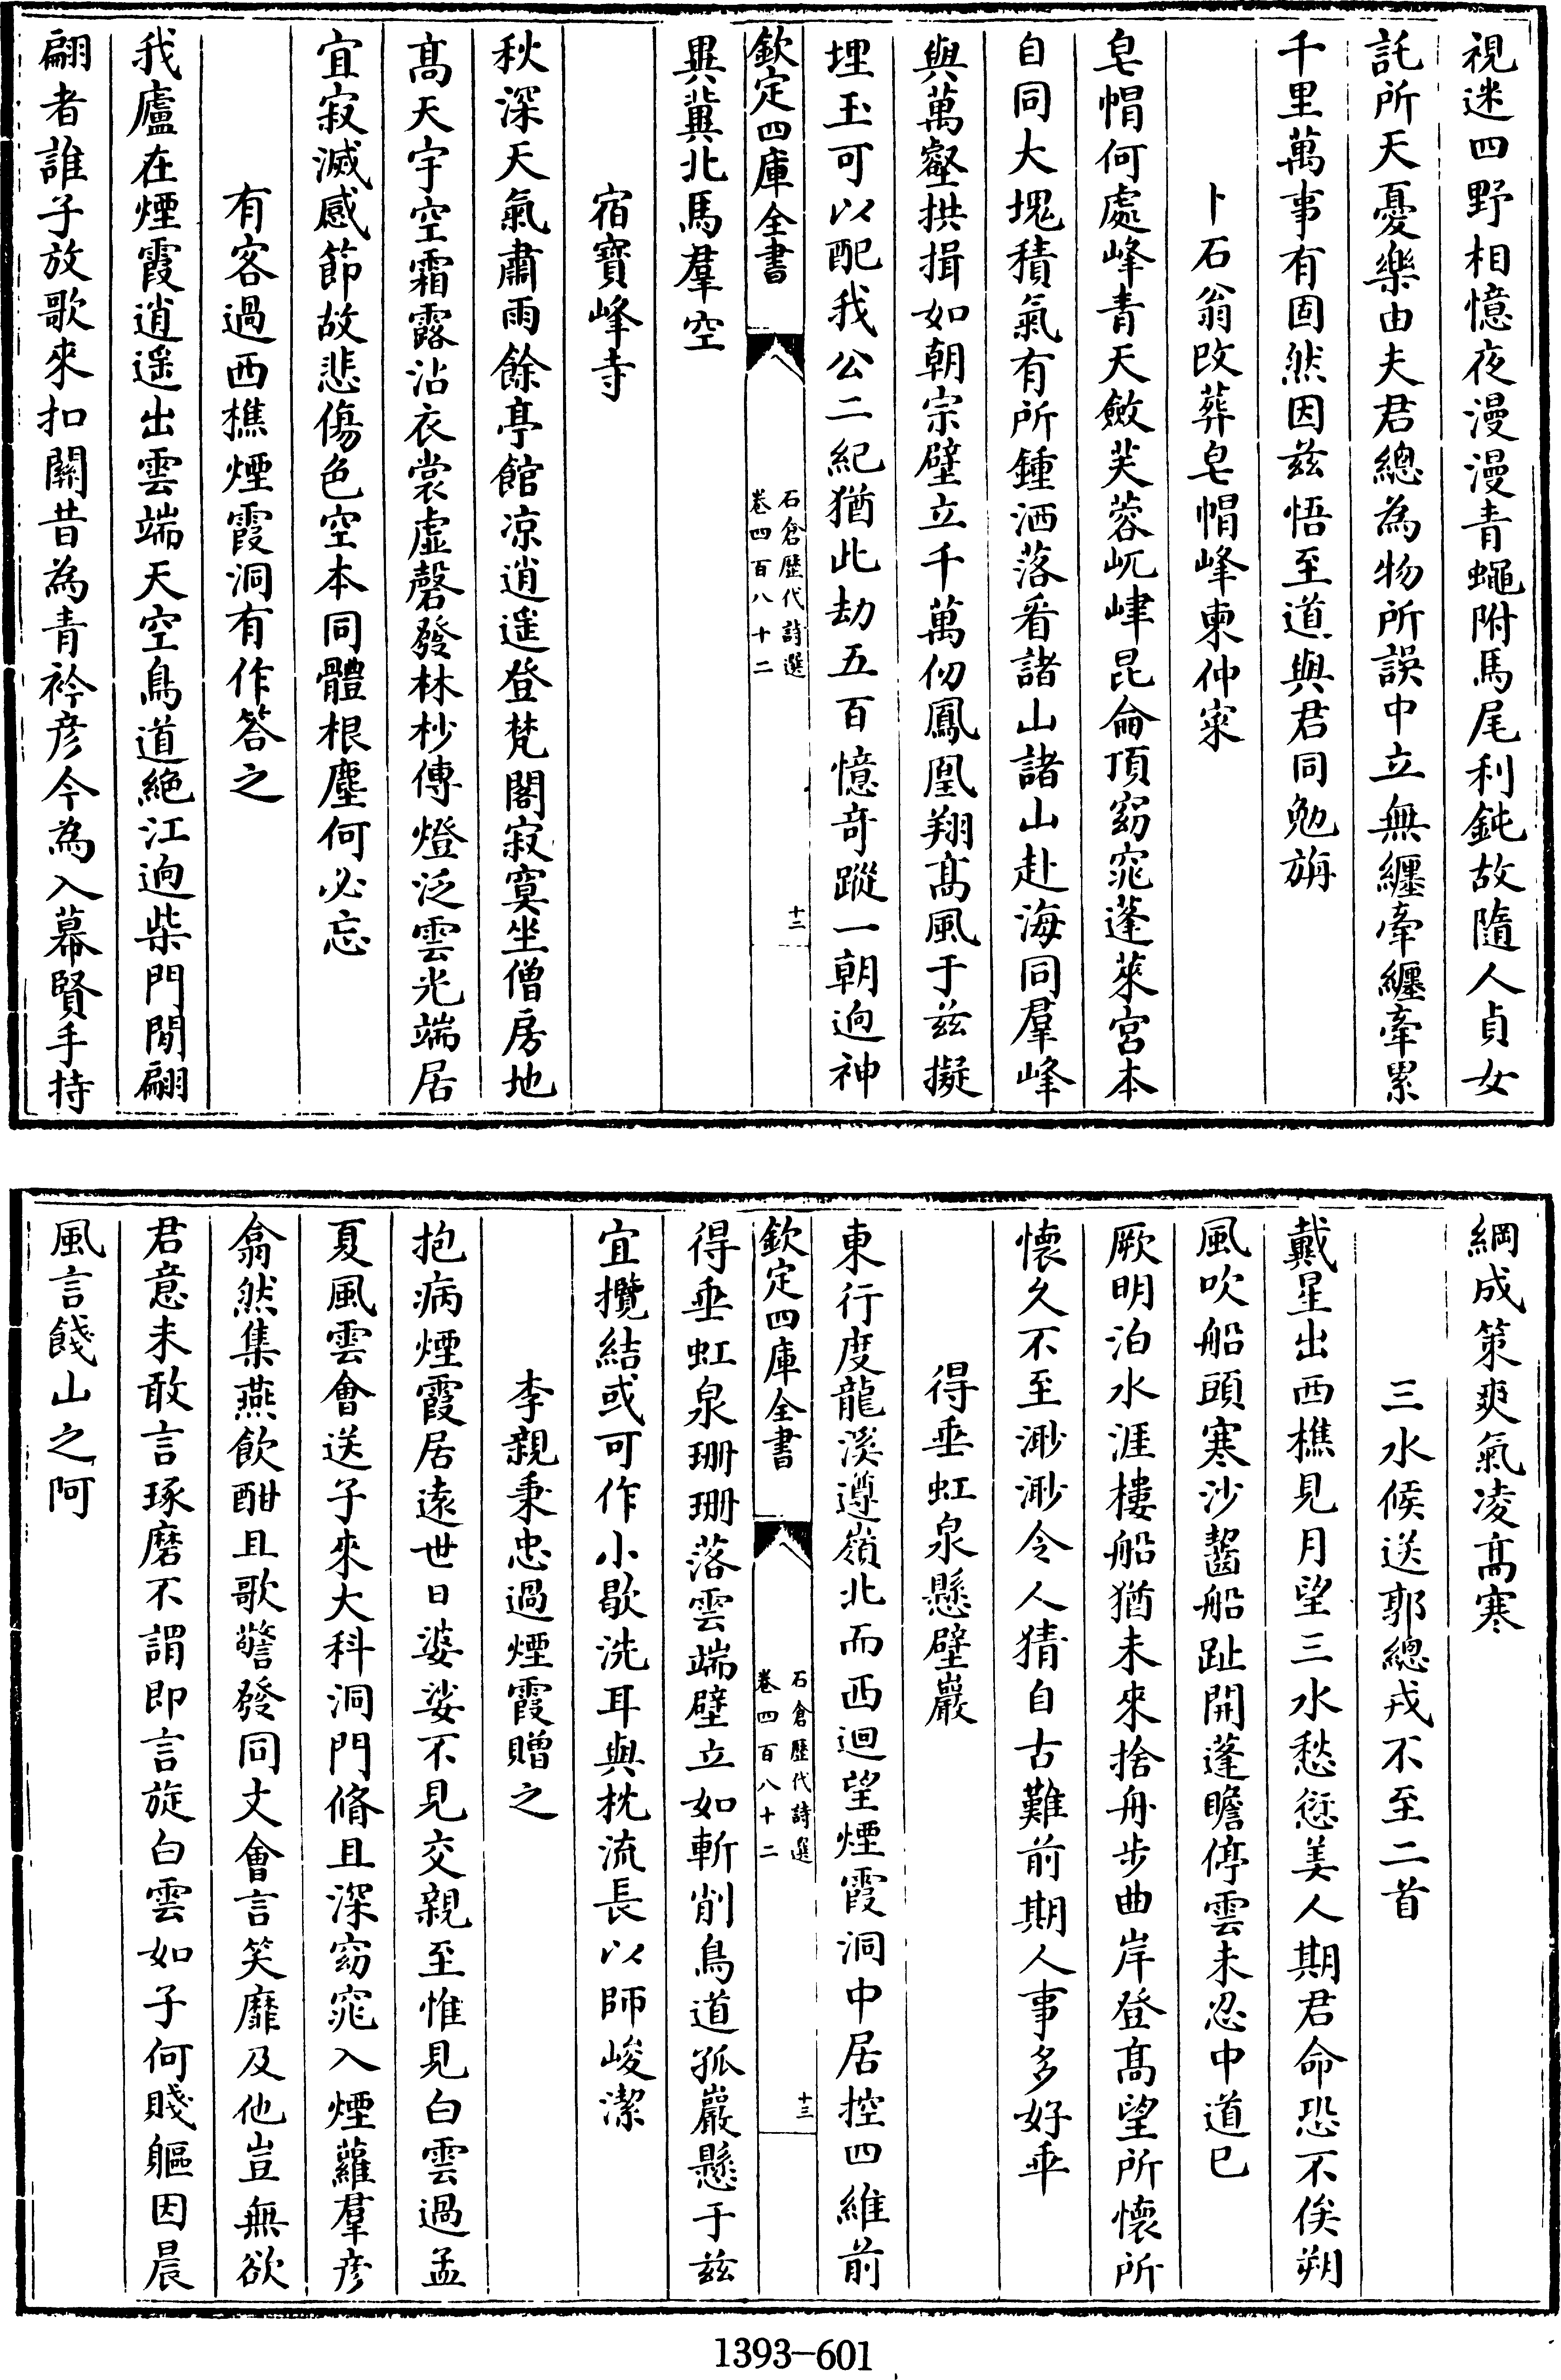 視迷四野相憶夜漫漫青蠅附馬尾利鈍故隨人貞女
託所天憂樂由夫君總為物所誤中立無纏牽纏牽累
千里萬事有固然因兹悟至道與君同勉旃
卜石翁改葬皂帽峰東仲寀
皂帽何處峰青天斂芙蓉屼嵂昆侖頂窈窕蓬萊宮本
自同大塊積氣有所鍾洒落看諸山諸山赴海同羣峰
與萬壑拱揖如朝宗壁立千萬仞鳳凰翔髙風于兹擬
埋玉可以配我公二紀猶此劫五百憶奇蹤一朝迥神
欽定四庫全書
石倉歷代詩選
卷四百八十二
十二
異冀北馬羣空
宿寶峰寺
秋深天氣肅雨餘亭館凉逍遥登梵閣寂寞坐僧房地
髙天宇空霜露沾衣裳虚磬發林杪傳燈泛雲光端居
宜寂滅感節故悲傷色空本同體根塵何必忘
有客過西樵煙霞洞有作答之
我廬在煙霞逍遥出雲端天空鳥道絶江迥柴門閒翩
翩者誰子放歌來扣關昔為青衿彦今為入幕賢手持
綱成策爽氣凌髙寒
三水候送郭總戎不至二首
戴星出西樵見月望三水愁愆美人期君命恐不俟朔
風吹船頭寒沙齧船趾開蓬瞻停雲未忍中道已
厥明泊水涯樓船猶未來捨舟步曲岸登髙望所懷所
懷久不至渺渺令人猜自古難前期人事多好乖
得垂虹泉懸壁巖
東行度龍溪遵嶺北而西迴望煙霞洞中居控四維前
欽定四庫全書
石倉歷代詩選
卷四百八十二
十三
得垂虹泉珊珊落雲端壁立如斬削鳥道孤巖懸于兹
宜攬結或可作小歇洗耳與枕流長以師峻潔
李親秉忠過煙霞贈之
抱病煙霞居遠世日婆娑不見交親至惟見白雲過孟
夏風雲會送子來大科洞門脩且深窈窕入煙蘿羣彦
翕然集燕飲酣且歌警發同文會言笑靡及他豈無欲
君意未敢言琢磨不謂即言旋白雲如子何賤軀因晨
風言餞山之阿
1393-601